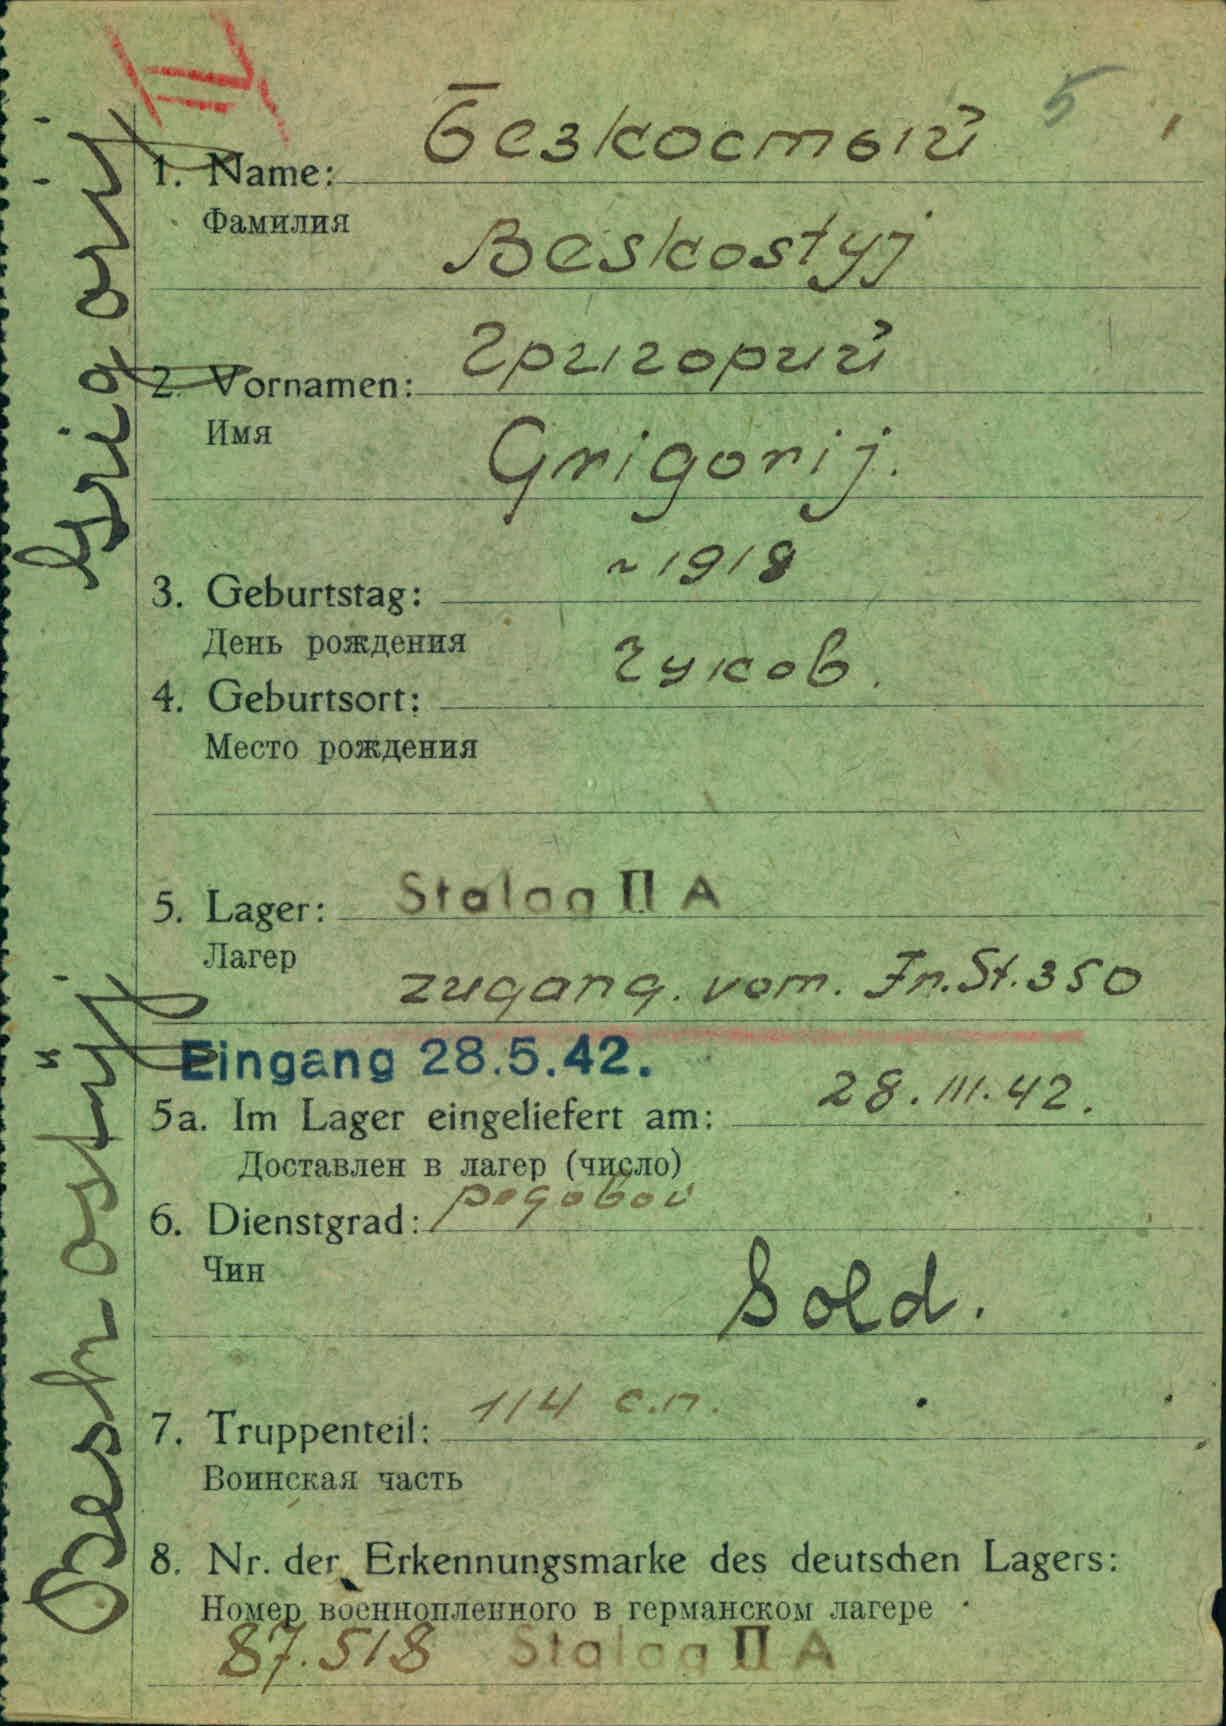 IV
5
Безкостый
1. Name:
Фамилия
Beskostyj
Григорий
2. Vornamen:
Имя
Grigorij.
~1918
3. Geburtstag:
День рождения
Чуков.
4. Geburtsort:
Место рождения
5. Lager: Stalag II A
Лагер
zugang. vom. Fr.St.350
Eingang 28.5.42.
28.III.42.
5a. Im Lager eingeliefert am:
Доставлен в лагер (число)
6. Dienstgrad: редовои
Чин
Sold.
7. Truppenteil: 114 с.п.
Воинская часть
8. Nr. der Erkennungsmarke des deutschen Lagers:
Номер военнопленного в германском лагере
87.518 Stalag II A
Beskostÿj Grigorij